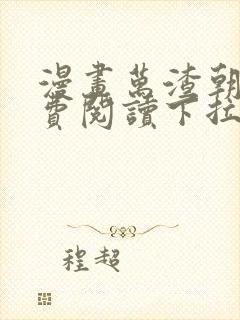 漫畫萬渣朝
費閱讀下拉
程超